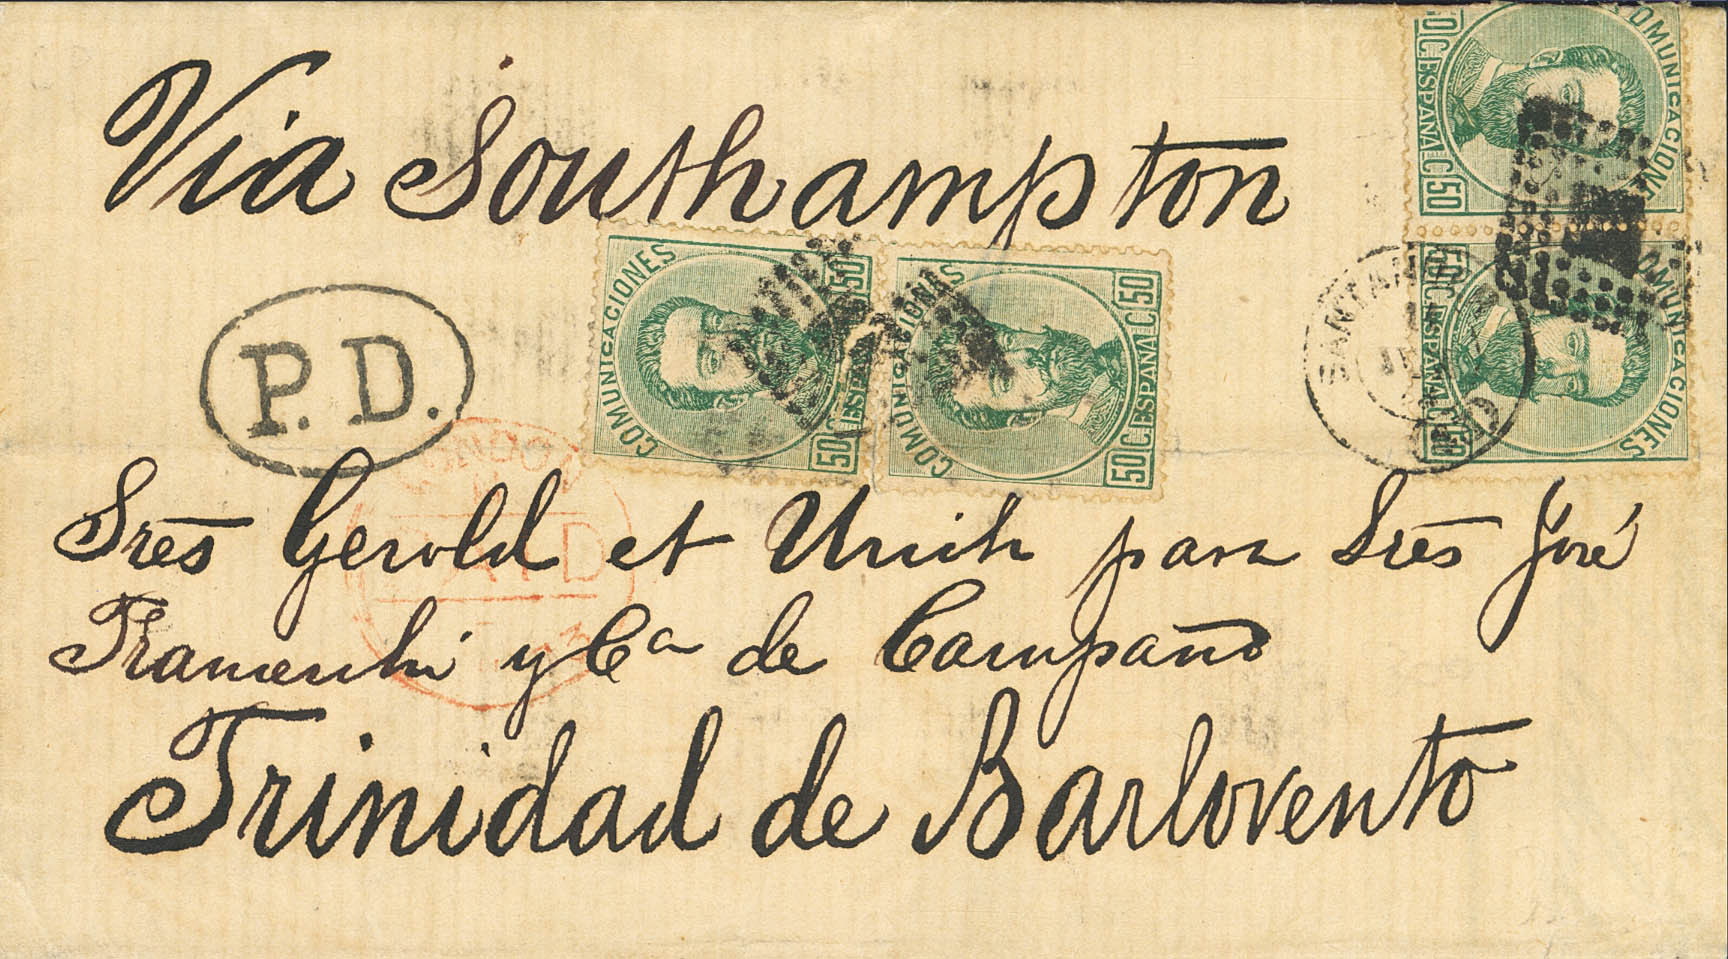 Via Southampton
COMUNICACIONES
50 C ESPAÑA C 50
COMUNICACIONES
50 C ESPAÑA C 50
COMUNICACIONES
50 C ESPAÑA C 50
COMUNICACIONES
50 C ESPAÑA C 50
SANTANDER
P.D.
LONDON
PAID
Sres Gerold et Urich para Sres José
y Ca de Campaño
Trinidad de Barlovento